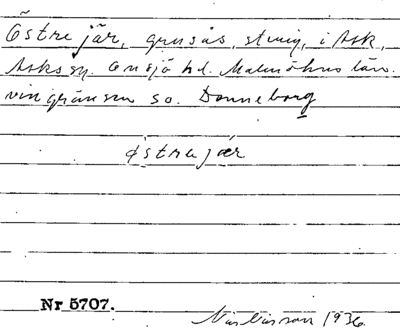 Östre jär, grusås, stenig, i Ask,
Asks sn. Onsjö hd. Malmöhus län.
vin gränsen so. Danneborg
östre jær
Nr 5707.
Nils Nilsson 1936